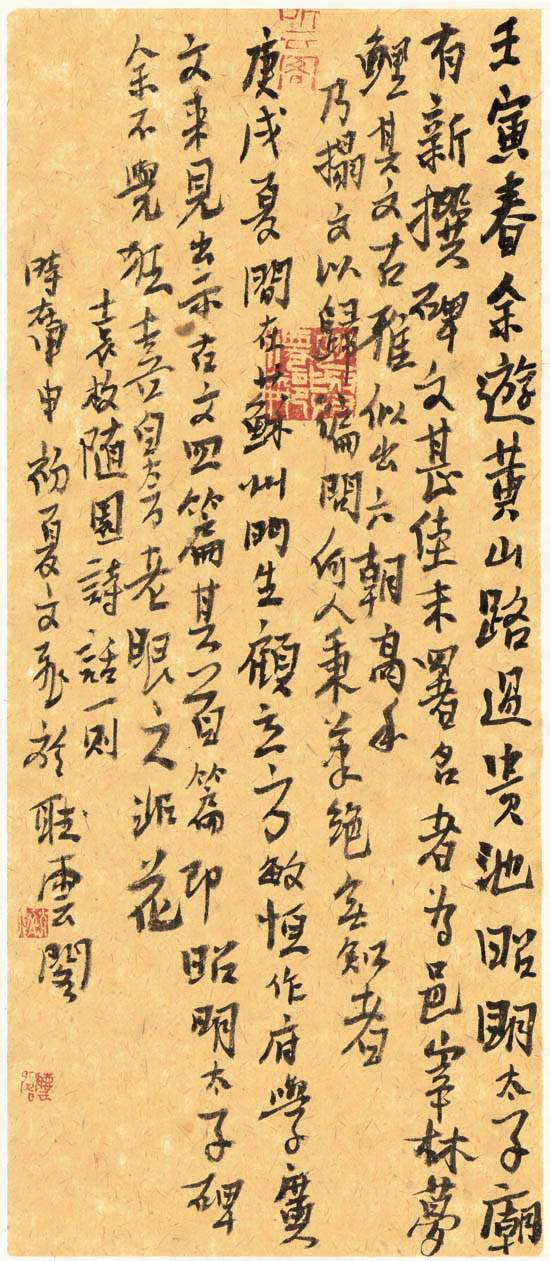 壬寅春余遊黄山路過貴池昭明太子廟
有新撰碑文甚佳末署名者為邑宰林夢
鯉其文古雅似出六朝高手
乃搨文以歸徧問何人秉筆絶無知者
庚戌夏間在蘇州門生顧立方敏恒作府學廣
文来見出示古文四篇其首篇即昭明太子碑
余不覺狂喜自夸老眼之非花
袁枚随園詩話一則
時庚申初夏文於聴雲閣
听云阁